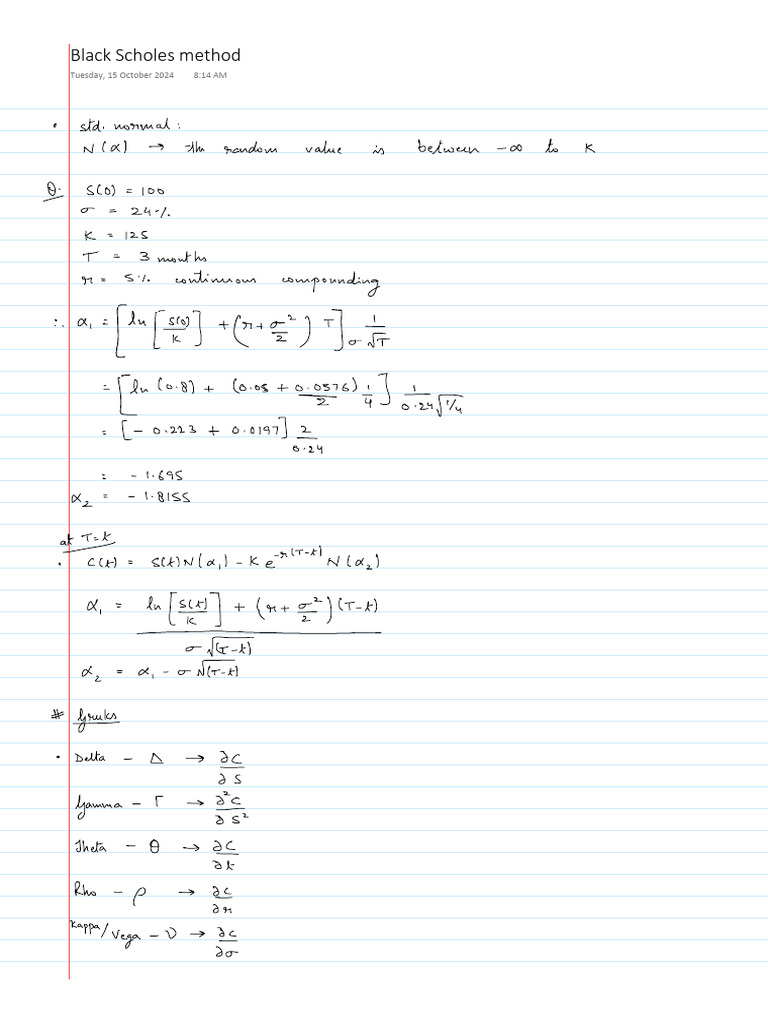 Black Scholes method
Tuesday, 15 October 2024 8:14 AM
• std. normal :
N(α) → the random value is between -∞ to K
Q. S(0) = 100
σ = 24%
K = 125
T = 3 months
r = 5% continuous compounding
∴ α₁ = [ln [S(0)/K] + (r + σ²/2) T] 1/σ√T
= [ln (0.8) + (0.05 + 0.0576/2) 1/4] 1/0.24√1/4
= [- 0.223 + 0.0197] 2/0.24
= - 1.695
α₂ = - 1.8155
at T=t
• C(t) = S(t) N(α₁) - K e^-r(T-t) N(α₂)
α₁ = ln [S(t)/K] + (r + σ²/2) (T-t) / σ √(T-t)
α₂ = α₁ - σ √(T-t)
# Greeks
• Delta - Δ → ∂C/∂S
Gamma - Γ → ∂²C/∂S²
Theta - θ → ∂C/∂t
Rho - ρ → ∂C/∂r
Kappa/Vega - ν → ∂C/∂σ